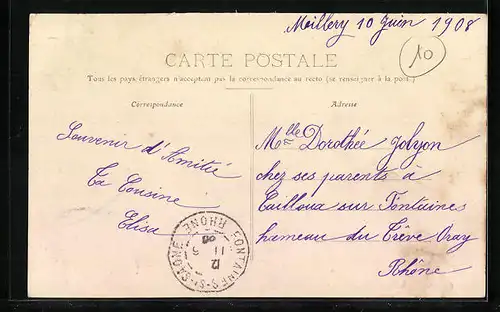 Millery 10 Juin 1908
10
CARTE POSTALE
Tous les pays étrangers n'acceptent pas la correspondance au recto (se renseigner à la poste)
Correspondance
Adresse
Souvenir d'Amitié
Ta Cousine
Elisa
Melle Dorothée Jolyon
chez ses parents à
Cailloux sur Fontaines
hameau du Trêve Oray
Rhône
FONTAINES-S-SAONE
RHONE
12
11 6
08